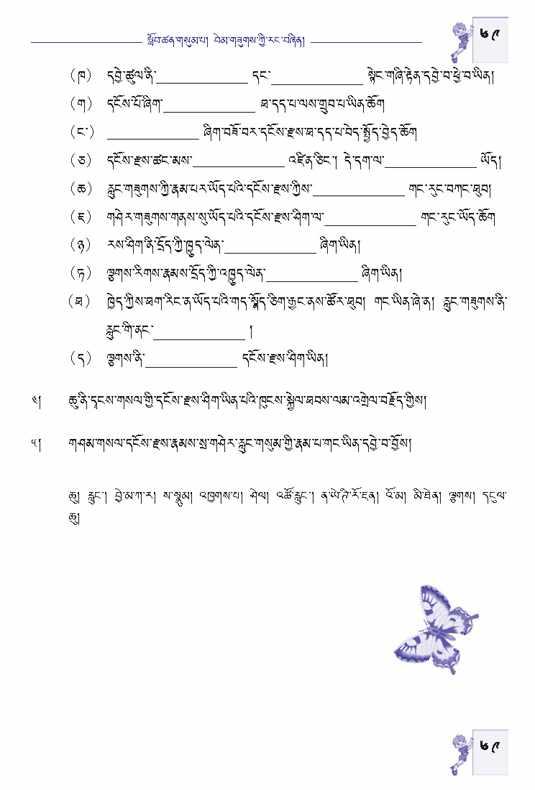 སློབ་ཚན་གསུམ་པ། བེམ་གཟུགས་ཀྱི་རང་བཞིན།
༤༩
(ཁ) དབྱེ་ཚུལ་ནི་______________ དང་______________ སྟེང་གཞི་རྟེན་དབྱེ་བ་ཕྱེ་བ་ཡིན།
(ག) དངོས་པོ་ཞིག་______________ ཐ་དད་པ་ལས་གྲུབ་པ་ཡིན་ཆོག
(ང་) ______________ ཞིག་བཟོ་བར་དངོས་རྫས་ཐ་དད་པ་བེད་སྤྱོད་བྱེད་ཆོག
(ཅ) དངོས་རྫས་ཚང་མས་______________ འཛིན་ཅིང་། དེ་དག་ལ་______________ ཡོད།
(ཆ) རླུང་གཟུགས་ཀྱི་རྣམ་པར་ཡོད་པའི་དངོས་རྫས་ཀྱིས་______________ གང་རུང་བཀང་ཐུབ།
(ཇ) གཤེར་གཟུགས་གནས་སུ་ཡོད་པའི་དངོས་རྫས་ཤིག་ལ་______________ གང་རུང་ཡོད་ཆོག
(ཉ) རས་ཤིག་ནི་དྲོད་ཀྱི་ཁྱུད་ལེན་______________ ཞིག་ཡིན།
(ཏ) ལྕགས་རིགས་རྣམས་དྲོད་ཀྱི་འཁྱུད་ལེན་______________ ཞིག་ཡིན།
(ཐ) ཁྱེད་ཀྱིས་ཐག་རིང་ན་ཡོད་པའི་གད་སྙོད་ཅིག་རྒྱང་ནས་ཚོར་ཐུབ། གང་ཡིན་ཞེ་ན། རླུང་གཟུགས་ནི་
རླུང་གི་ནང་______________ །
(ད) ལྕགས་ནི་______________ དངོས་རྫས་ཤིག་ཡིན།
༤། ཆུ་ནི་དྭངས་གསལ་གྱི་དངོས་རྫས་ཤིག་ཡིན་པའི་ཁུངས་སྐྱེལ་ཐབས་ལམ་འགྲེལ་བརྗོད་གྱིས།
༥། གཤམ་གསལ་དངོས་རྫས་རྣམས་སྲ་གཤེར་རླུང་གསུམ་གྱི་རྣམ་པ་གང་ཡིན་དབྱེ་བ་བྱོས།
ཆུ། རླུང་། བྱེ་མ་ཀ་ར། ས་སྣུམ། འཁྱགས་པ། ཤེལ། འཚོ་རླུང་། ན་ཡེ་ཊི་རོ་ཇན། འོ་མ། མི་ཐེན། ལྕགས། དངུལ་
ཆུ།
༤༩